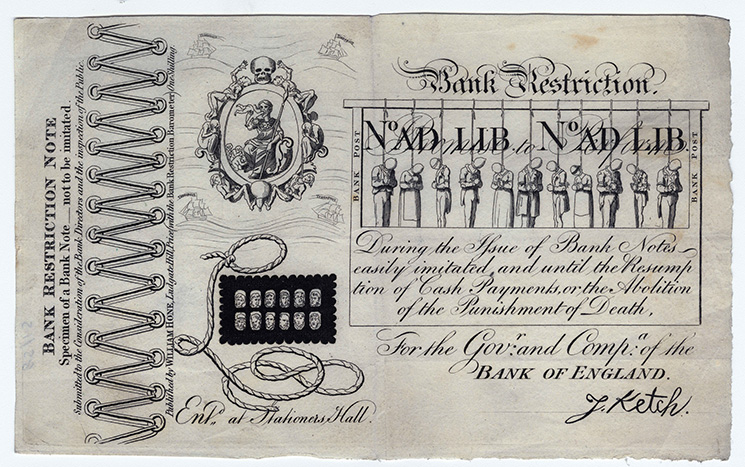 BANK RESTRICTION NOTE
Specimen of a Bank Note — not to be imitated.
Submitted to the Consideration of the Bank Directors and the inspection of the Public.
Published by WILLIAM HONE, Ludgate Hill, Price, with the Bank Restriction Barometer, One Shilling.
Ent.d at Stationers Hall.
Bank Restriction.
BANK POST
No. AD LIB. No. AD LIB.
BANK POST
During the Issue of Bank Notes
easily imitated, and until the Resump
tion of Cash Payments, or the Abolition
of the Punishment of Death,
For the Gov.r and Comp.a of the
BANK OF ENGLAND.
J. Ketch.